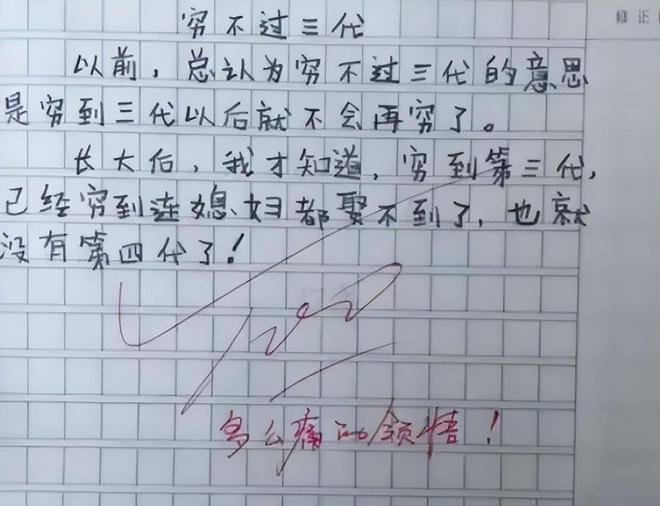 穷不过三代
修正
以前，总认为穷不过三代的意思
是穷到三代以后就不会再穷了。
长大后，我才知道，穷到第三代，
已经穷到连媳妇都娶不到了，也就
没有第四代了！
100
多么痛的领悟！